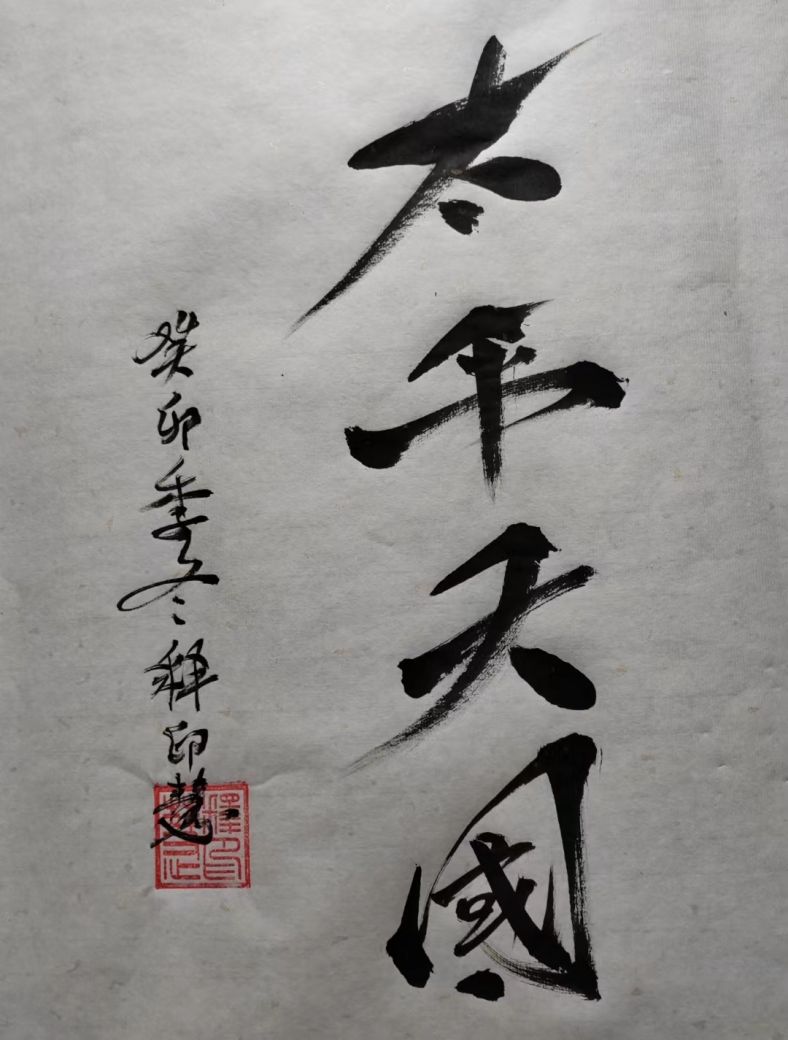 太平天國
癸卯季冬釋印慧